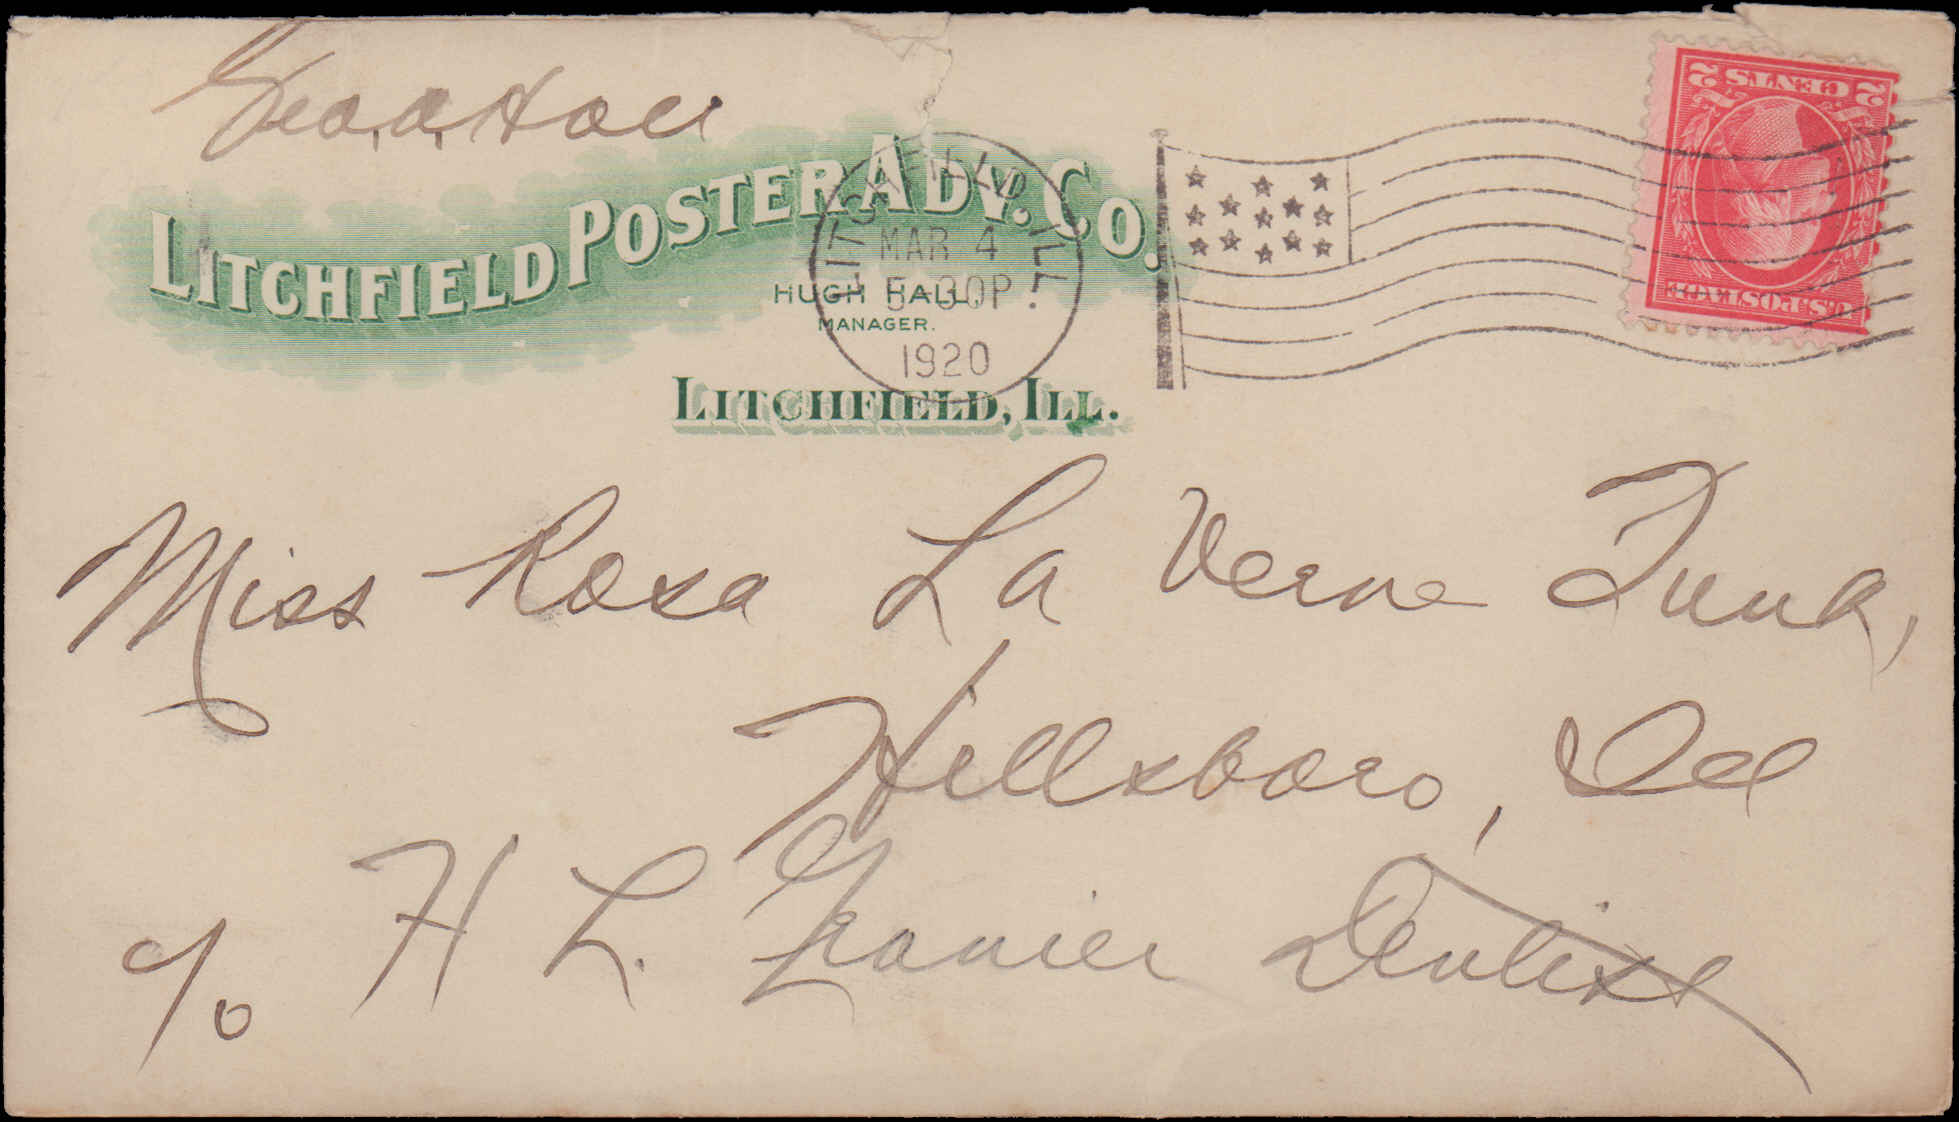 Geo. A. Hall
LITCHFIELD POSTER ADV. CO.
HUGH HALL,
MANAGER.
LITCHFIELD, ILL.
LITCHFIELD, ILL.
MAR 4
5-30P
1920
2 CENTS 2
U.S. POSTAGE
Miss Rosa La Verne Funk,
Hillsboro, Ill
c/o H L. Granier Dentist